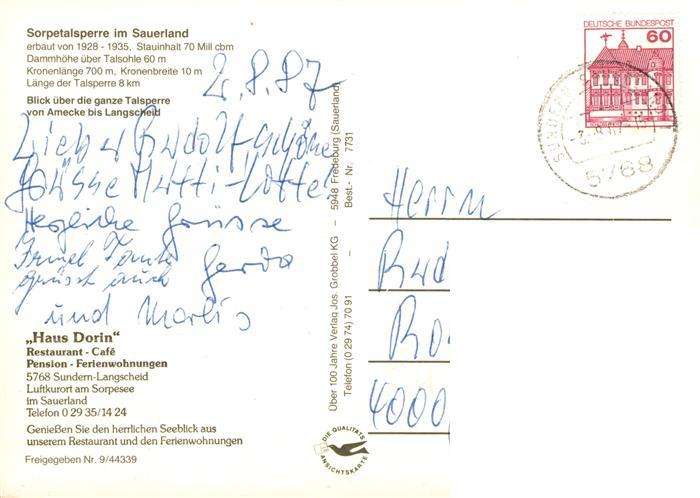 Sorpetalsperre im Sauerland
erbaut von 1928 - 1935, Stauinhalt 70 Mill cbm
Dammhöhe über Talsohle 60 m
Kronenlänge 700 m, Kronenbreite 10 m
Länge der Talsperre 8 km
Blick über die ganze Talsperre
von Amecke bis Langscheid
2.8.87
Lieber Rudolf schöne
Grüsse Mutti - Lotte
Herzliche Grüsse
Tante
grüsst auch Gerda
und Marlis
„Haus Dorin"
Restaurant - Café
Pension - Ferienwohnungen
5768 Sundern-Langscheid
Luftkurort am Sorpesee
im Sauerland
Telefon 0 29 35/14 24
Genießen Sie den herrlichen Seeblick aus
unserem Restaurant und den Ferienwohnungen
Freigegeben Nr. 9/44339
Über 100 Jahre Verlag Jos. Grobbel KG – 5948 Fredeburg (Sauerland)
Telefon (0 29 74) 70 91 – Best.- Nr. 7731
DIE QUALITÄTS
ANSICHTSKARTE
DEUTSCHE BUNDESPOST
60
SUNDERN
5768
Herrn
Rud
Ro
4000